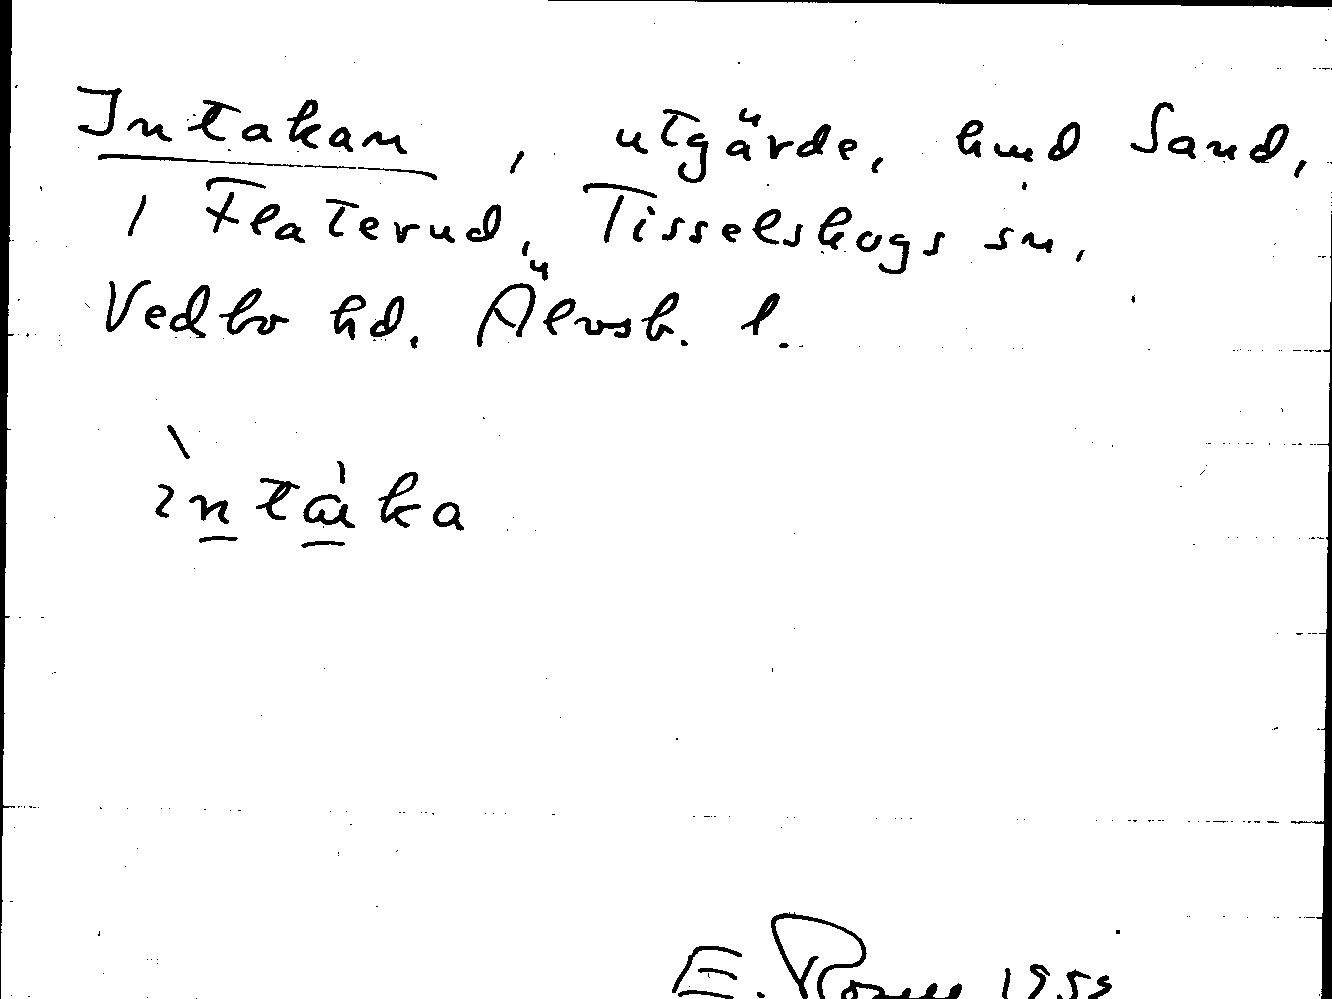 Intakan, utgärde, hmd Sand,
1 Flaterud, Tisselskogs sn,
Vedbo hd. Älvsb. l.
ìntàka
E. 1955